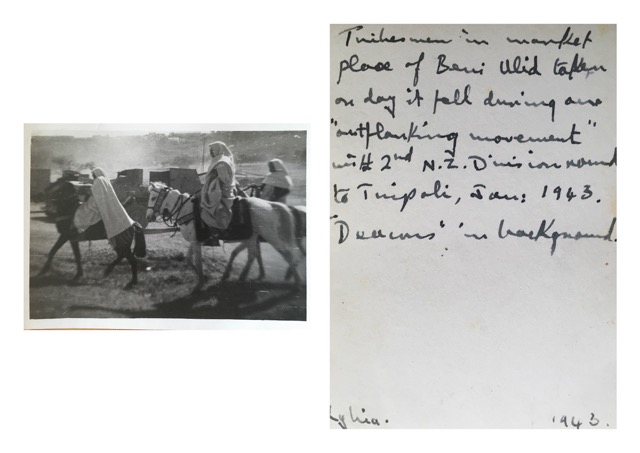 Tribesmen in market
place of Beni Ulid taken
on day it fell during our
"outflanking movement"
with 2nd N.Z. Division round
to Tripoli, Jan: 1943.
'Deacons' in background.
Lybia. 1943.